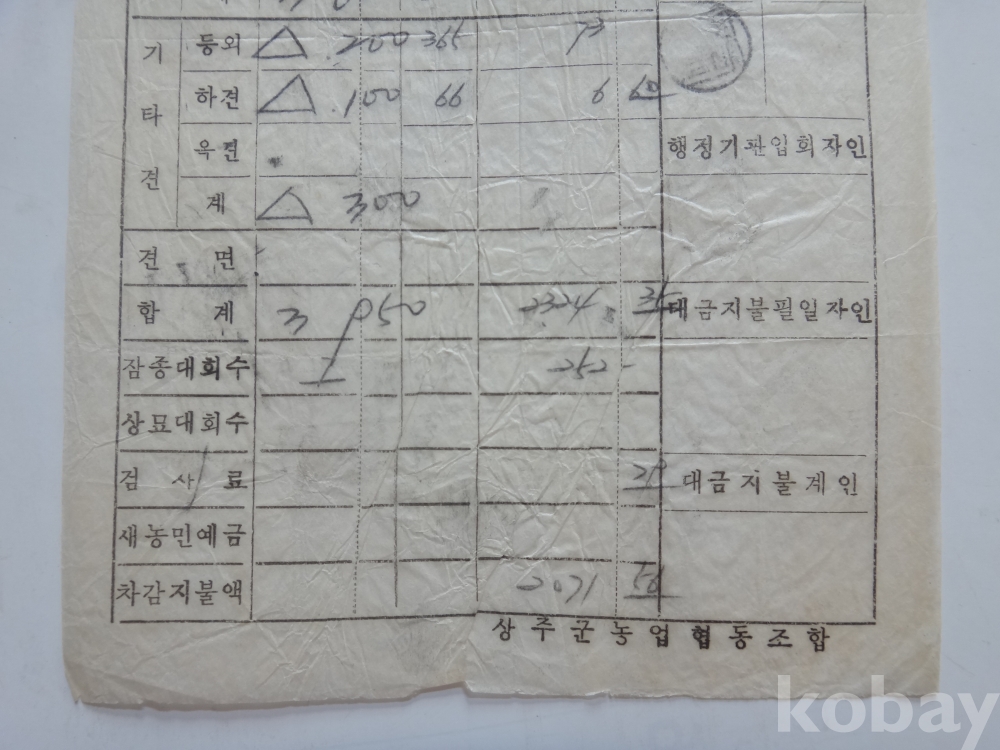 기타견
등외 △ .200 365 73
하견 △ .100 66 6 60
옥견
계 △ 300
행정기관입회자인
견 면
합 계 3 950 2324 35
대금지불필일자인
잠종대회수 1 252 -
상묘대회수
검 사 료 29
대금지불계인
새농민예금
차감지불액 2.071 56
상주군농업협동조합
kobay